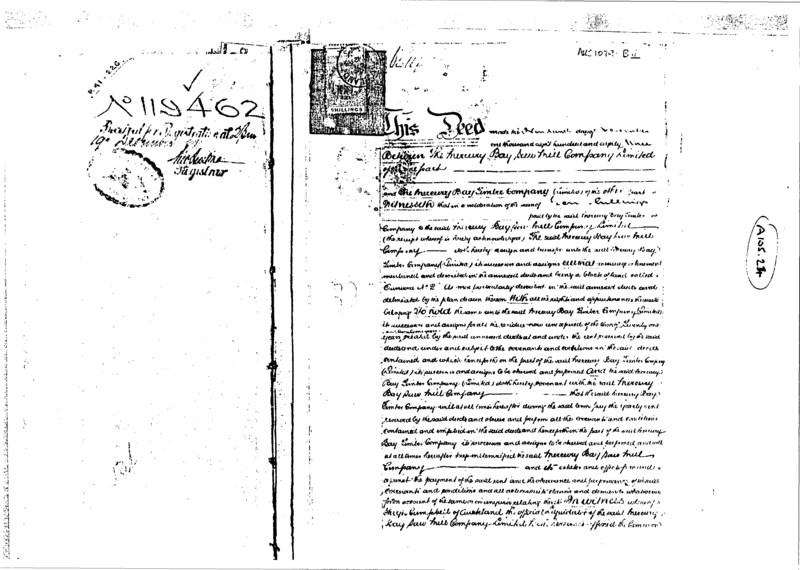 A 91.220
No 119462
Received for Registration at
19th December
Registrar
SHILLINGS
This Deed made the day of November
one thousand eight hundred and eighty
Between The Mercury Bay Saw Mill Company Limited
of the one part
and The Mercury Bay Timber Company (Limited) of the other part
Witnesseth that in consideration of the sum of Shillings
paid by the said Mercury Bay Timber
Company to the said Mercury Bay Saw Mill Company Limited
(the receipt whereof is hereby acknowledged) The said Mercury Bay Saw Mill
Company doth hereby assign and transfer unto the said Mercury Bay
Timber Company (Limited) its successors and assigns All that
mentioned and described in the annexed deed and being a block of land called
No 2 As more particularly described in the said annexed deed and
delineated by the plan drawn thereon With all the rights and appurtenances thereunto
belonging To hold the same unto the said Mercury Bay Timber Company (Limited)
its successors and assigns for all the residue now unexpired of the term of Seventy one
years created by the said annexed deed at and under the rent reserved by the said
deed and under and subject to the covenants and conditions in the said deed
contained and which henceforth on the part of the said Mercury Bay Timber Company
(Limited) its successors and assigns to be observed and performed And the said Mercury
Bay Timber Company (Limited) doth hereby covenant with the said Mercury
Bay Saw Mill Company that the said Mercury Bay
Timber Company will at all times hereafter during the said term pay the yearly rent
reserved by the said deed and observe and perform all the covenants and conditions
contained and implied in the said deed and henceforth on the part of the said Mercury
Bay Timber Company its successors and assigns to be observed and performed and will
at all times hereafter keep indemnified the said Mercury Bay Saw Mill
Company and its estate and effects from and
against the payment of the said rent and the observance and performance of the said
covenants and conditions and all actions suits claims and demands whatsoever
for on account of the same or in anywise relating thereto In witness whereof
Campbell of Auckland the official liquidator of the said Mercury
Bay Saw Mill Company Limited has affixed the Common
A105.24